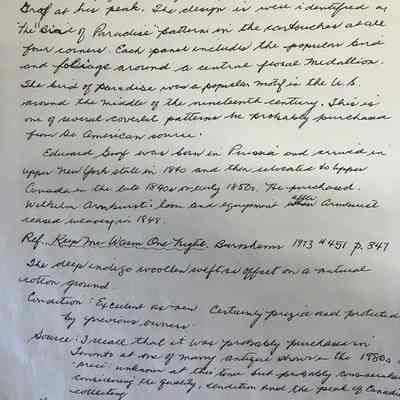 Graf at his peak. The design is were identified as
the "Bird of Paradise" pattern in the cartouches at all
four corners. Each panel includes the popular bird
and foliage around a central floral medallion.
The bird of paradise was a popular motif in the U.S.
around the middle of the nineteenth century. This is
one of several coverlet patterns he probably purchased
from an American source.
Edward Graf was born in Prussia and arrived in
upper New York state in 1840 and then relocated to Upper
Canada in the late 1840s or early 1850s. He purchased
Wilhelm Armbrust's loom and equipment after Armbrust
ceased weaving in 1848.
Ref. Keep Me Warm One Night, Burnhams 1973 #451 p. 347
The deep indigo woollen weft is offset on a natural
cotton ground
Condition: Excellent as new Certainly prized and protected
by previous owners
Source: I recall that it was probably purchased in
Toronto at one of many antique shows in the 1980s
price: unknown at this time but probably
considering the quality, condition and the peak of
collecting